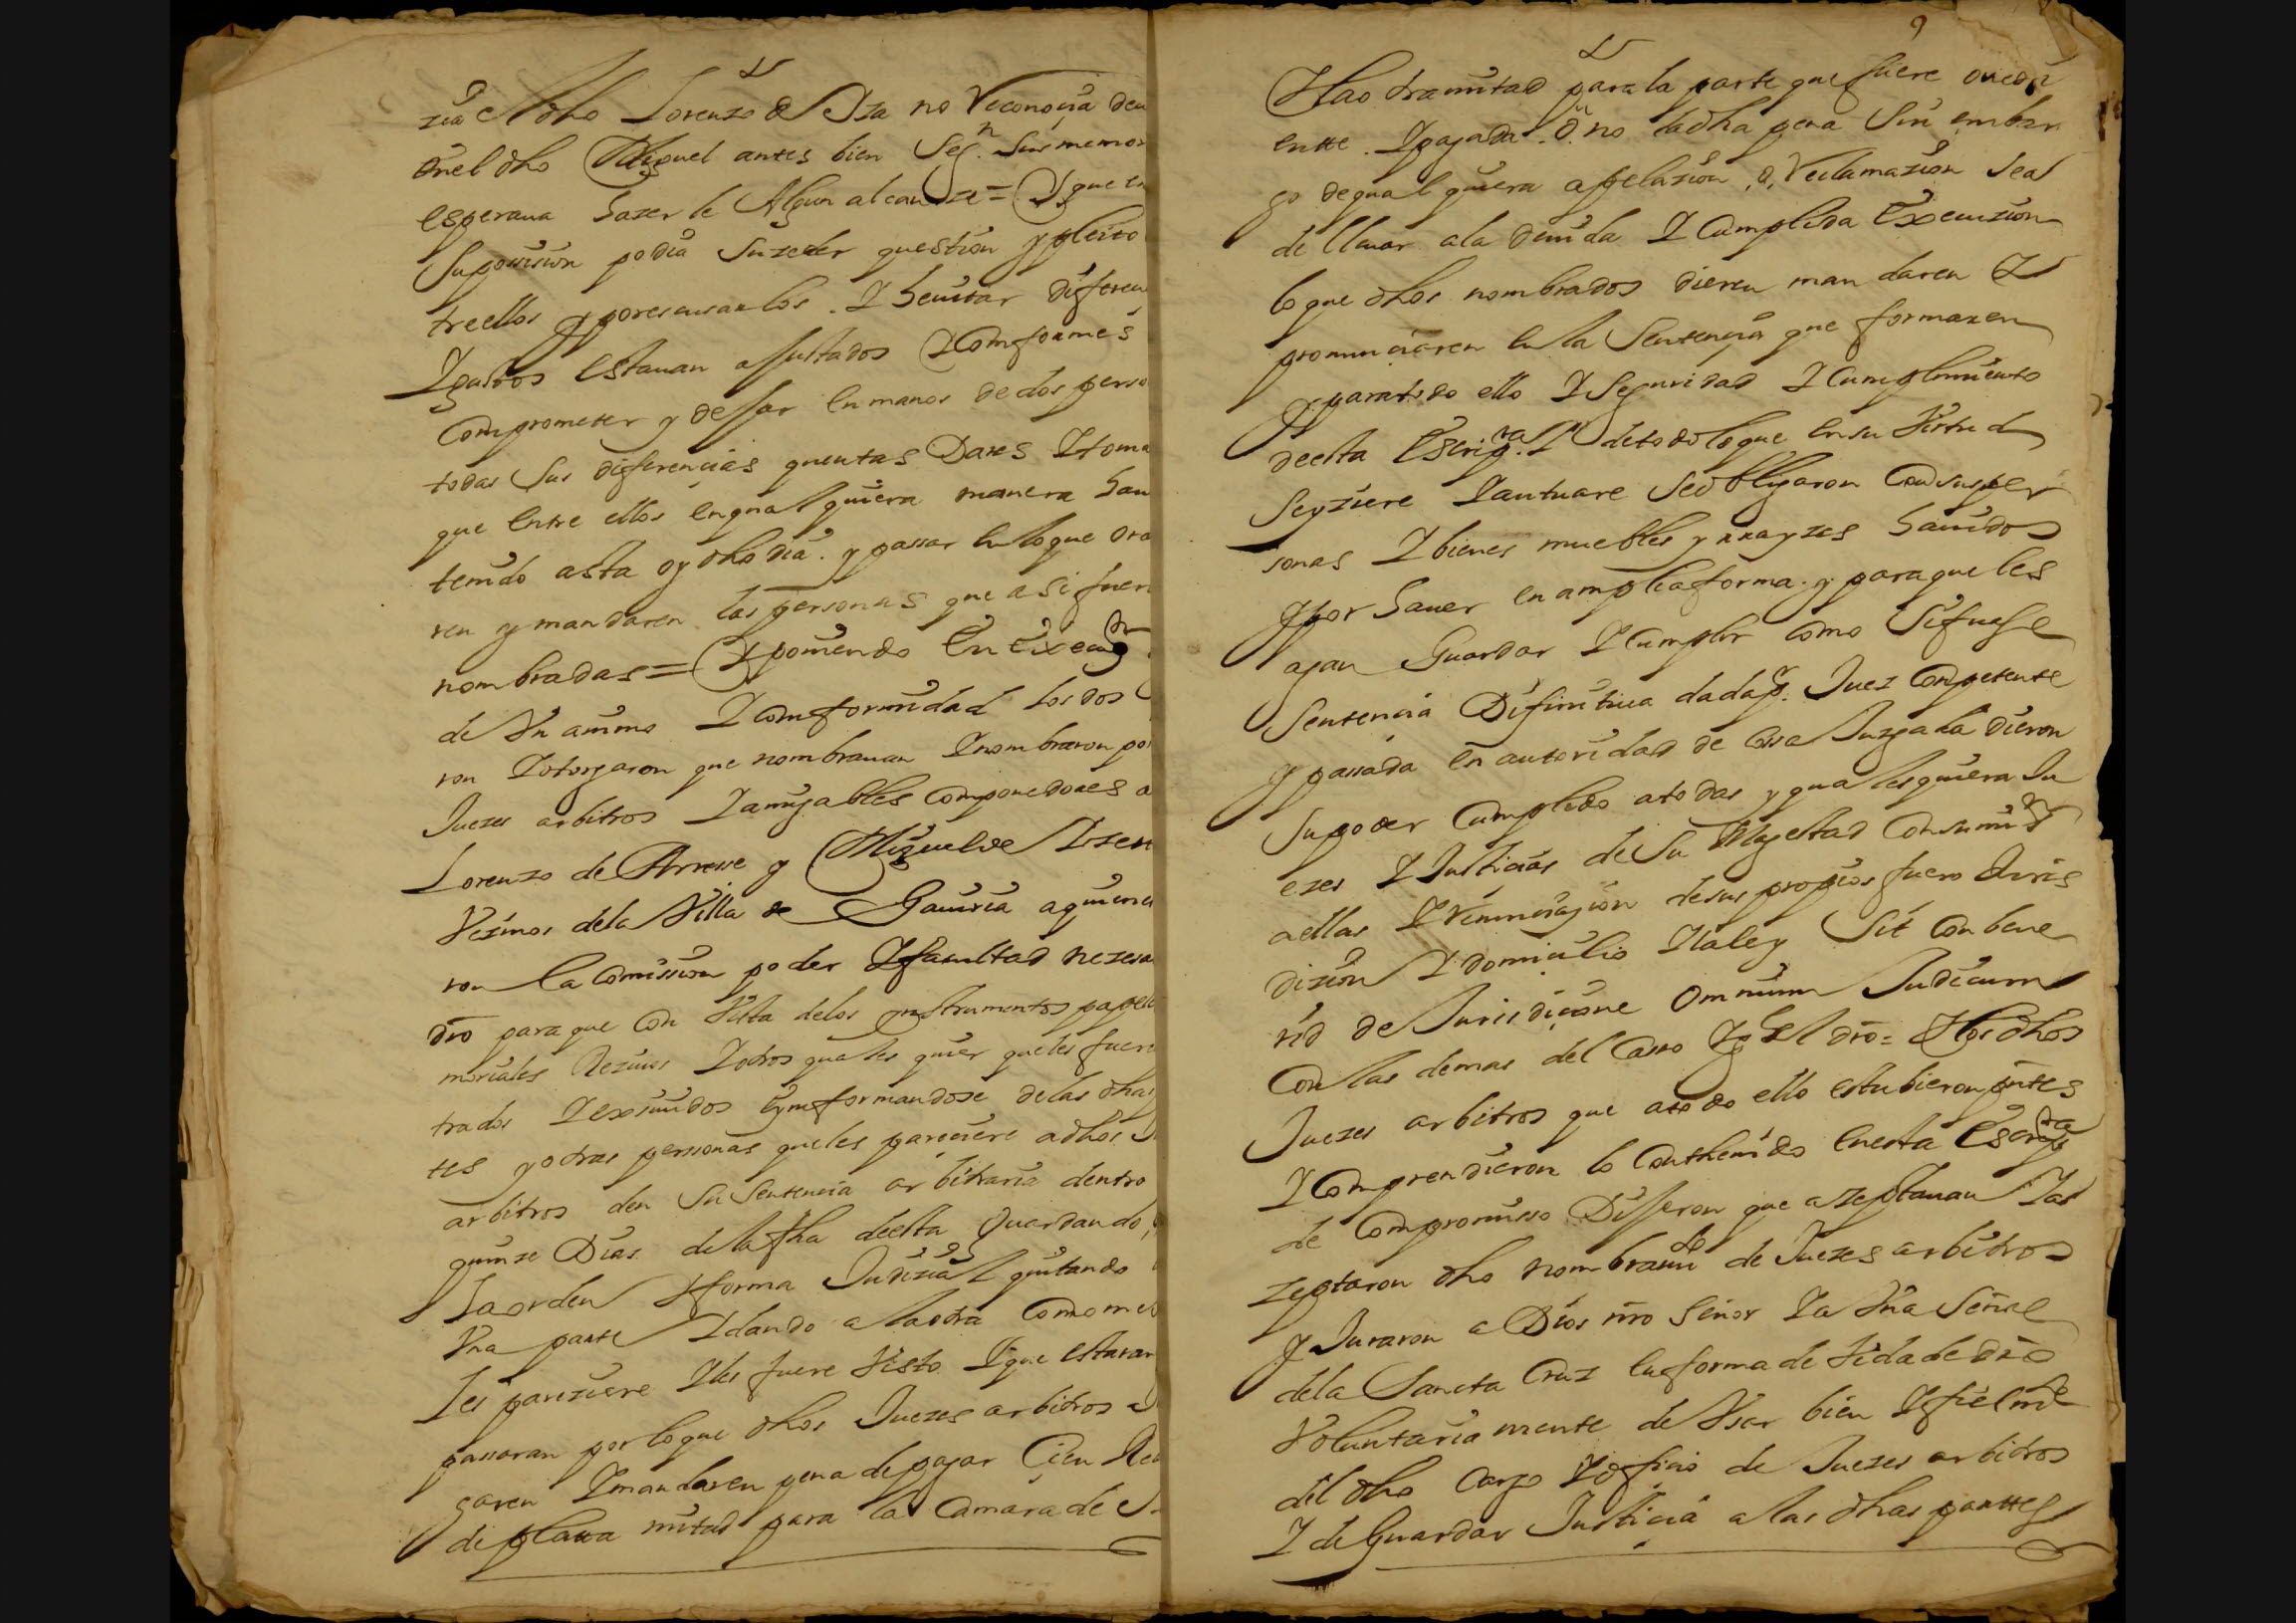 zia el dho Lorenzo de Yza no Reconozia deu
en el dho Miguel antes bien Seg.n Sus memor
esperaua hazer le Algun alcanze = Y que en
Suposizion podia Suzeder question y pleito
tre ellos y por escusarlos. Y heuitar diferen
Y gastos estauan ajustados Y Comformes
Comprometer y dejar en manos de dos perso
todas Sus diferencias quentas Dares Y toma
que entre ellos en qualquiera manera han
tenido asta oy dho dia. y passar en lo que or
ren y mandaren las personas que asi fuer
nombradas = Y poniendo en execu.on
de Vn animo Y Comformidad los dos
ron Y otorgaron que nombrauan Y nombraron por
Juezes arbitros Y amigables Componedores a
Lorenzo de Arrese y Miguel de
Vezinos de la Villa de Gauiria a quienes
ron la Comission poder Y facultad nezesa
dro para que con Vista de los ynstrumentos papele
moriales Rezuios Y otros quales quier que les fuere
trados Y exsiuidos e ymformandose de las dhas
tes y otras personas que les pareziere a dhos J
arbitros den Su Sentencia arbitraria dentro
quinze Dias de la fha de esta Guardando
la orden Y forma Judizial quitando
Vna parte Y dando a la otra Como me
les pareziere Y les fuere Visto Y que estaran
passaran por lo que dhos Juezes arbitros
garen Y mandaren pena de pagar Cien Rea
de plata mitad para la Camara de S
9
Y la otra mitad para la parte que fuere ouedi
ente. Y pagada. o. no la dha pena Sin embar
go de qual quiera apelazion, o, Reclamazion Sea
de lleuar a la deuida Y Cumplida Execuzion
lo que dhos nombrados dieren mandaren Y
pronunciaren en la Sentencia que formaren
Y para todo ello Y Seguridad Y Cumplimiento
de esta Escrip.ra Y de todo lo que en su Virtud
Se yziere Y autuare Se obligaron Con sus per
sonas Y bienes muebles y rrayzes hauidos
y por hauer en amplia forma. y para que les
agan Guardar Y Cumplir Como Si fuese
Sentencia Difinitiua dada p.r Juez Competente
y passada en autoridad de Cossa Juzgada dieron
Su poder Cumplido a todas y qualesquiera Ju
ezes Y Justicias de Su Magestad Con sumi.on
a ellas Y Renunciazion de sus propios fuero Juris
dizion Y domicilio Y la ley Sit Conbene
rid de Jurisdicione Omnium Judicum
Con las demas del Casso Y g.l del dro = Y los dhos
Juezes arbitros que a todo ello estubieron pntes
Y Comprendieron lo Conthenido en esta Escrip.ra
de Compromisso Dijeron que azeptauan Y a
zeptaron dho nombrami.to de Juezes arbitros
y Juraron a Dios nro Señor Y a Vna Señal
de la Sancta Cruz en forma deVida de dro
Voluntariamente de Vsar bien Y fielm.te
del dho Cargo Y oficio de Juezes arbitros
Y de Guardar Justicia a las dhas parttes